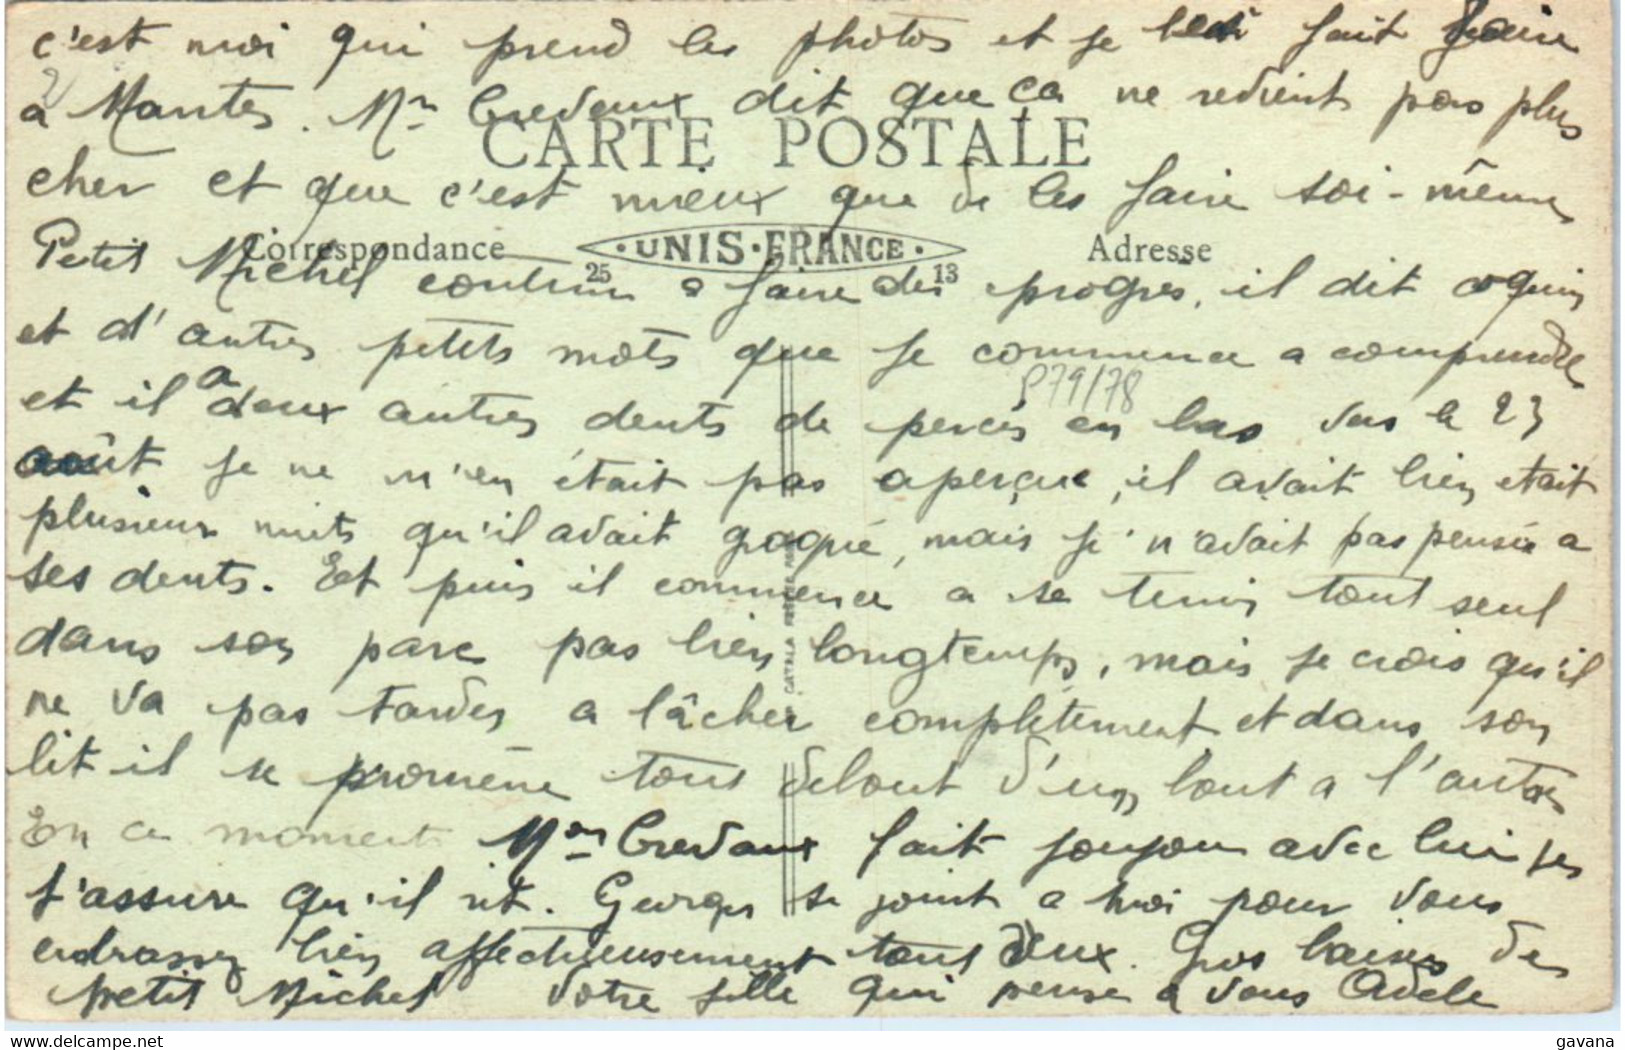 c'est moi qui prend les photos et je fait faire
à Mantes. Mr Crevaux dit que ça ne revient pas plus
CARTE POSTALE
cher et que c'est mieux que de les faire soi-même
Correspondance
25 UNIS-FRANCE 13
Adresse
Petit Michel continu a faire des progrès, il dit coquin
et d'autres petits mots que je commence a comprendre
P79/78
et il a deux autres dents de percés en bas vers le 23
août je ne m'en était pas aperçue, il avait bien était
plusieur nuits qu'il avait grogné, mais je n'avait pas pensée a
ses dents. Et puis il commence a se tenir tout seul
dans son parc pas bien longtemps, mais je crois qu'il
CATALA
ne va pas tarder a lâcher complètement et dans son
lit il se promène tout debout d'un bout a l'autre
En ce moment Mon Crevaux fait joujou avec lui je
t'assure qu'il rit. Georges se joint a moi pour vous
embrasser bien affectueusement tous deux. Gros baisers de
petit Michel Votre fille qui pense a vous Adele
gavana